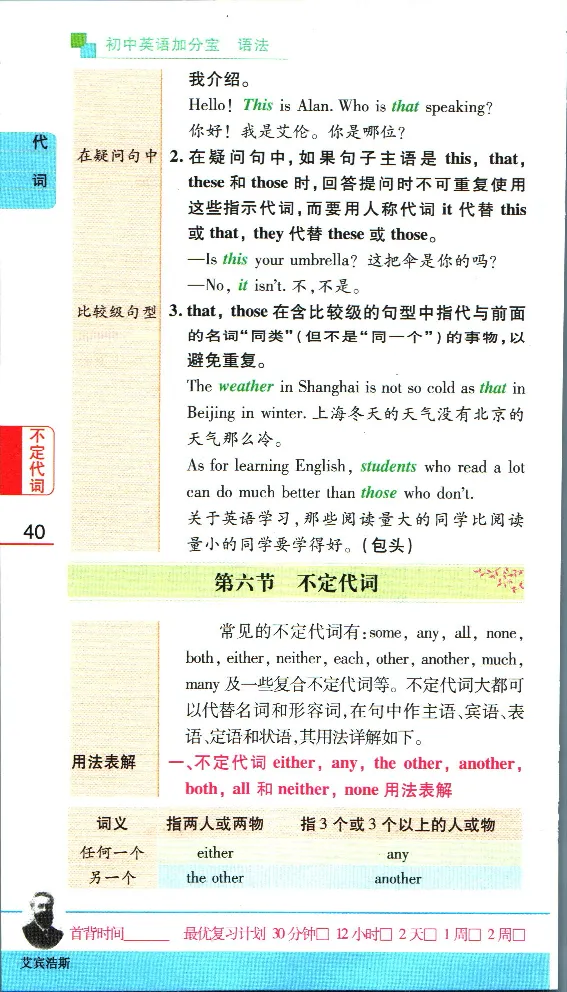 初中英语加分宝 语法
我介绍。
Hello! This is Alan. Who is that speaking?
你好!我是艾伦。你是哪位?
代词
在疑问句中
2. 在疑问句中,如果句子主语是 this, that,
these 和 those 时,回答提问时不可重复使用
这些指示代词,而要用人称代词 it 代替 this
或 that, they 代替 these 或 those。
—Is this your umbrella? 这把伞是你的吗?
—No, it isn't. 不,不是。
比较级句型
3. that, those 在含比较级的句型中指代与前面
的名词“同类”(但不是“同一个”)的事物,以
避免重复。
The weather in Shanghai is not so cold as that in
Beijing in winter. 上海冬天的天气没有北京的
天气那么冷。
As for learning English, students who read a lot
can do much better than those who don't.
关于英语学习,那些阅读量大的同学比阅读
量小的同学要学得好。(包头)
不定代词
40
第六节 不定代词
常见的不定代词有:some, any, all, none,
both, either, neither, each, other, another, much,
many 及一些复合不定代词等。不定代词大都可
以代替名词和形容词,在句中作主语、宾语、表
语、定语和状语,其用法详解如下。
用法表解
一、不定代词 either, any, the other, another,
both, all 和 neither, none 用法表解
词义 指两人或两物 指 3 个或 3 个以上的人或物
任何一个 either any
另一个 the other another
首背时间______ 最优复习计划 30 分钟□ 12 小时□ 2 天□ 1 周□ 2 周□
艾宾浩斯